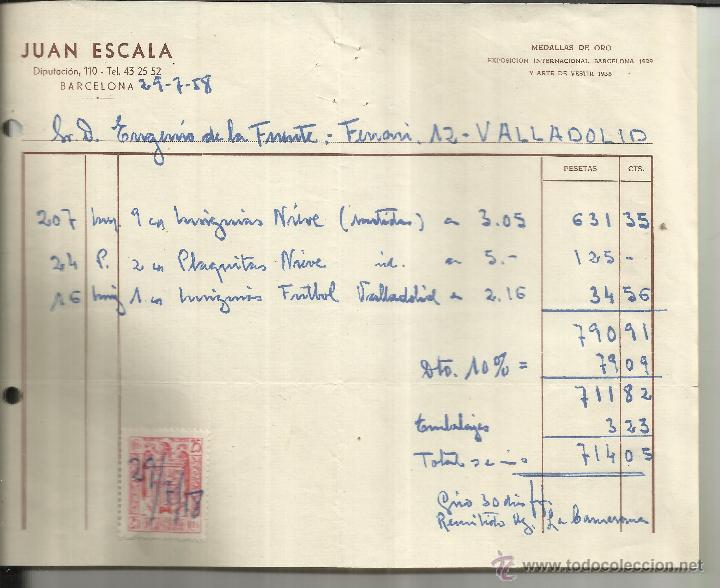 JUAN ESCALA
Diputación, 110 - Tel. 43 25 52
BARCELONA 29-7-58
MEDALLAS DE ORO
EXPOSICION INTERNACIONAL BARCELONA 1929
Y ARTE DE VESTIR 1935
Sr. D. Eugenio de la Fuente - Ferrari, 12 - VALLADOLID
PESETAS CTS.
207 9 Insignias Nieve (surtidas) a 3.05 631 35
24 P. 2 Plaquitas Nieve id. a 5.- 125 -
16 1 Insignias Futbol Valladolid a 2.16 34 56
790 91
Dto. 10% = 79 09
711 82
Embalajes 3 23
Total 714 05
25
29/7/58
Giro 30 d/f.
Remitido Ag. La Camerana
www.todocoleccion.net